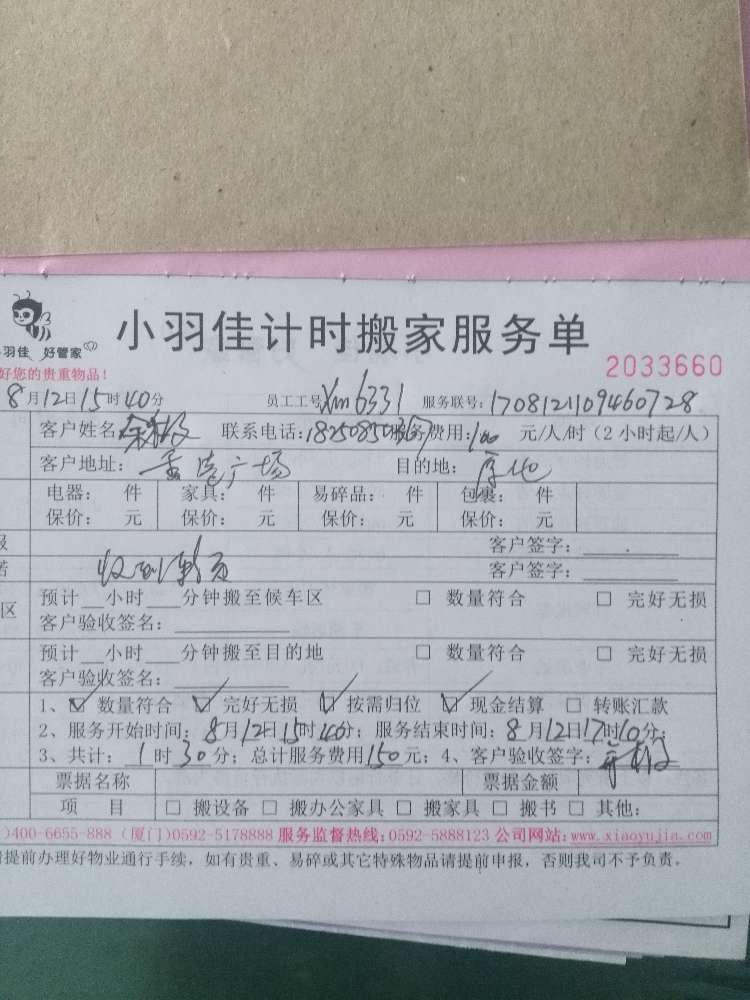 小羽佳计时搬家服务单
羽佳 好管家
2033660
好您的贵重物品!
8月12日15时40分 员工工号:Xm6331 服务联号:1708121109460728
客户姓名: 联系电话: 服务费用:100 元/人/时(2小时起/人)
客户地址: 广场 目的地:原地
电器: 件 家具: 件 易碎品: 件 包裹: 件
保价: 元 保价: 元 保价: 元 保价: 元
客户签字:
客户签字:
预计 小时 分钟搬至候车区 □ 数量符合 □ 完好无损
区
客户验收签名:
预计 小时 分钟搬至目的地 □ 数量符合 □ 完好无损
客户验收签名:
1、☑ 数量符合 ☑ 完好无损 ☑ 按需归位 ☑ 现金结算 □ 转账汇款
2、服务开始时间:8月12日15时40分;服务结束时间:8月12日17时10分;
3、共计:1时30分;总计服务费用150元;4、客户验收签字:
票据名称 票据金额
项 目 □ 搬设备 □ 搬办公家具 □ 搬家具 □ 搬书 □ 其他:
)400-6655-888 (厦门)0592-5178888 服务监督热线:0592-5888123 公司网站:www.xiaoyujia.com
提前办理好物业通行手续,如有贵重、易碎或其它特殊物品请提前申报,否则我司不予负责。